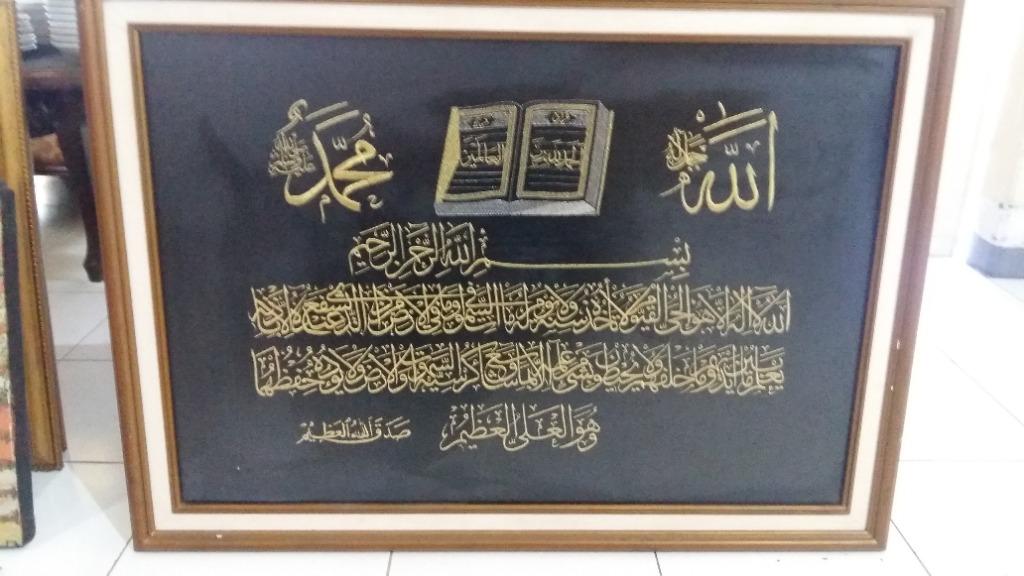 الله جل جلاله
محمد صلى الله عليه وسلم
الحمد لله رب
العالمين
بِسْمِ اللَّهِ الرَّحْمَنِ الرَّحِيمِ
الله لا إله إلا هو الحي القيوم لا تأخذه سنة ولا نوم له ما في السموات وما في الأرض من ذا الذي يشفع عنده إلا بإذنه
يعلم ما بين أيديهم وما خلفهم ولا يحيطون بشيء من علمه إلا بما شاء وسع كرسيه السموات والأرض ولا يؤده حفظهما
وَهُوَ الْعَلِيُّ الْعَظِيمُ
صدق الله العظيم